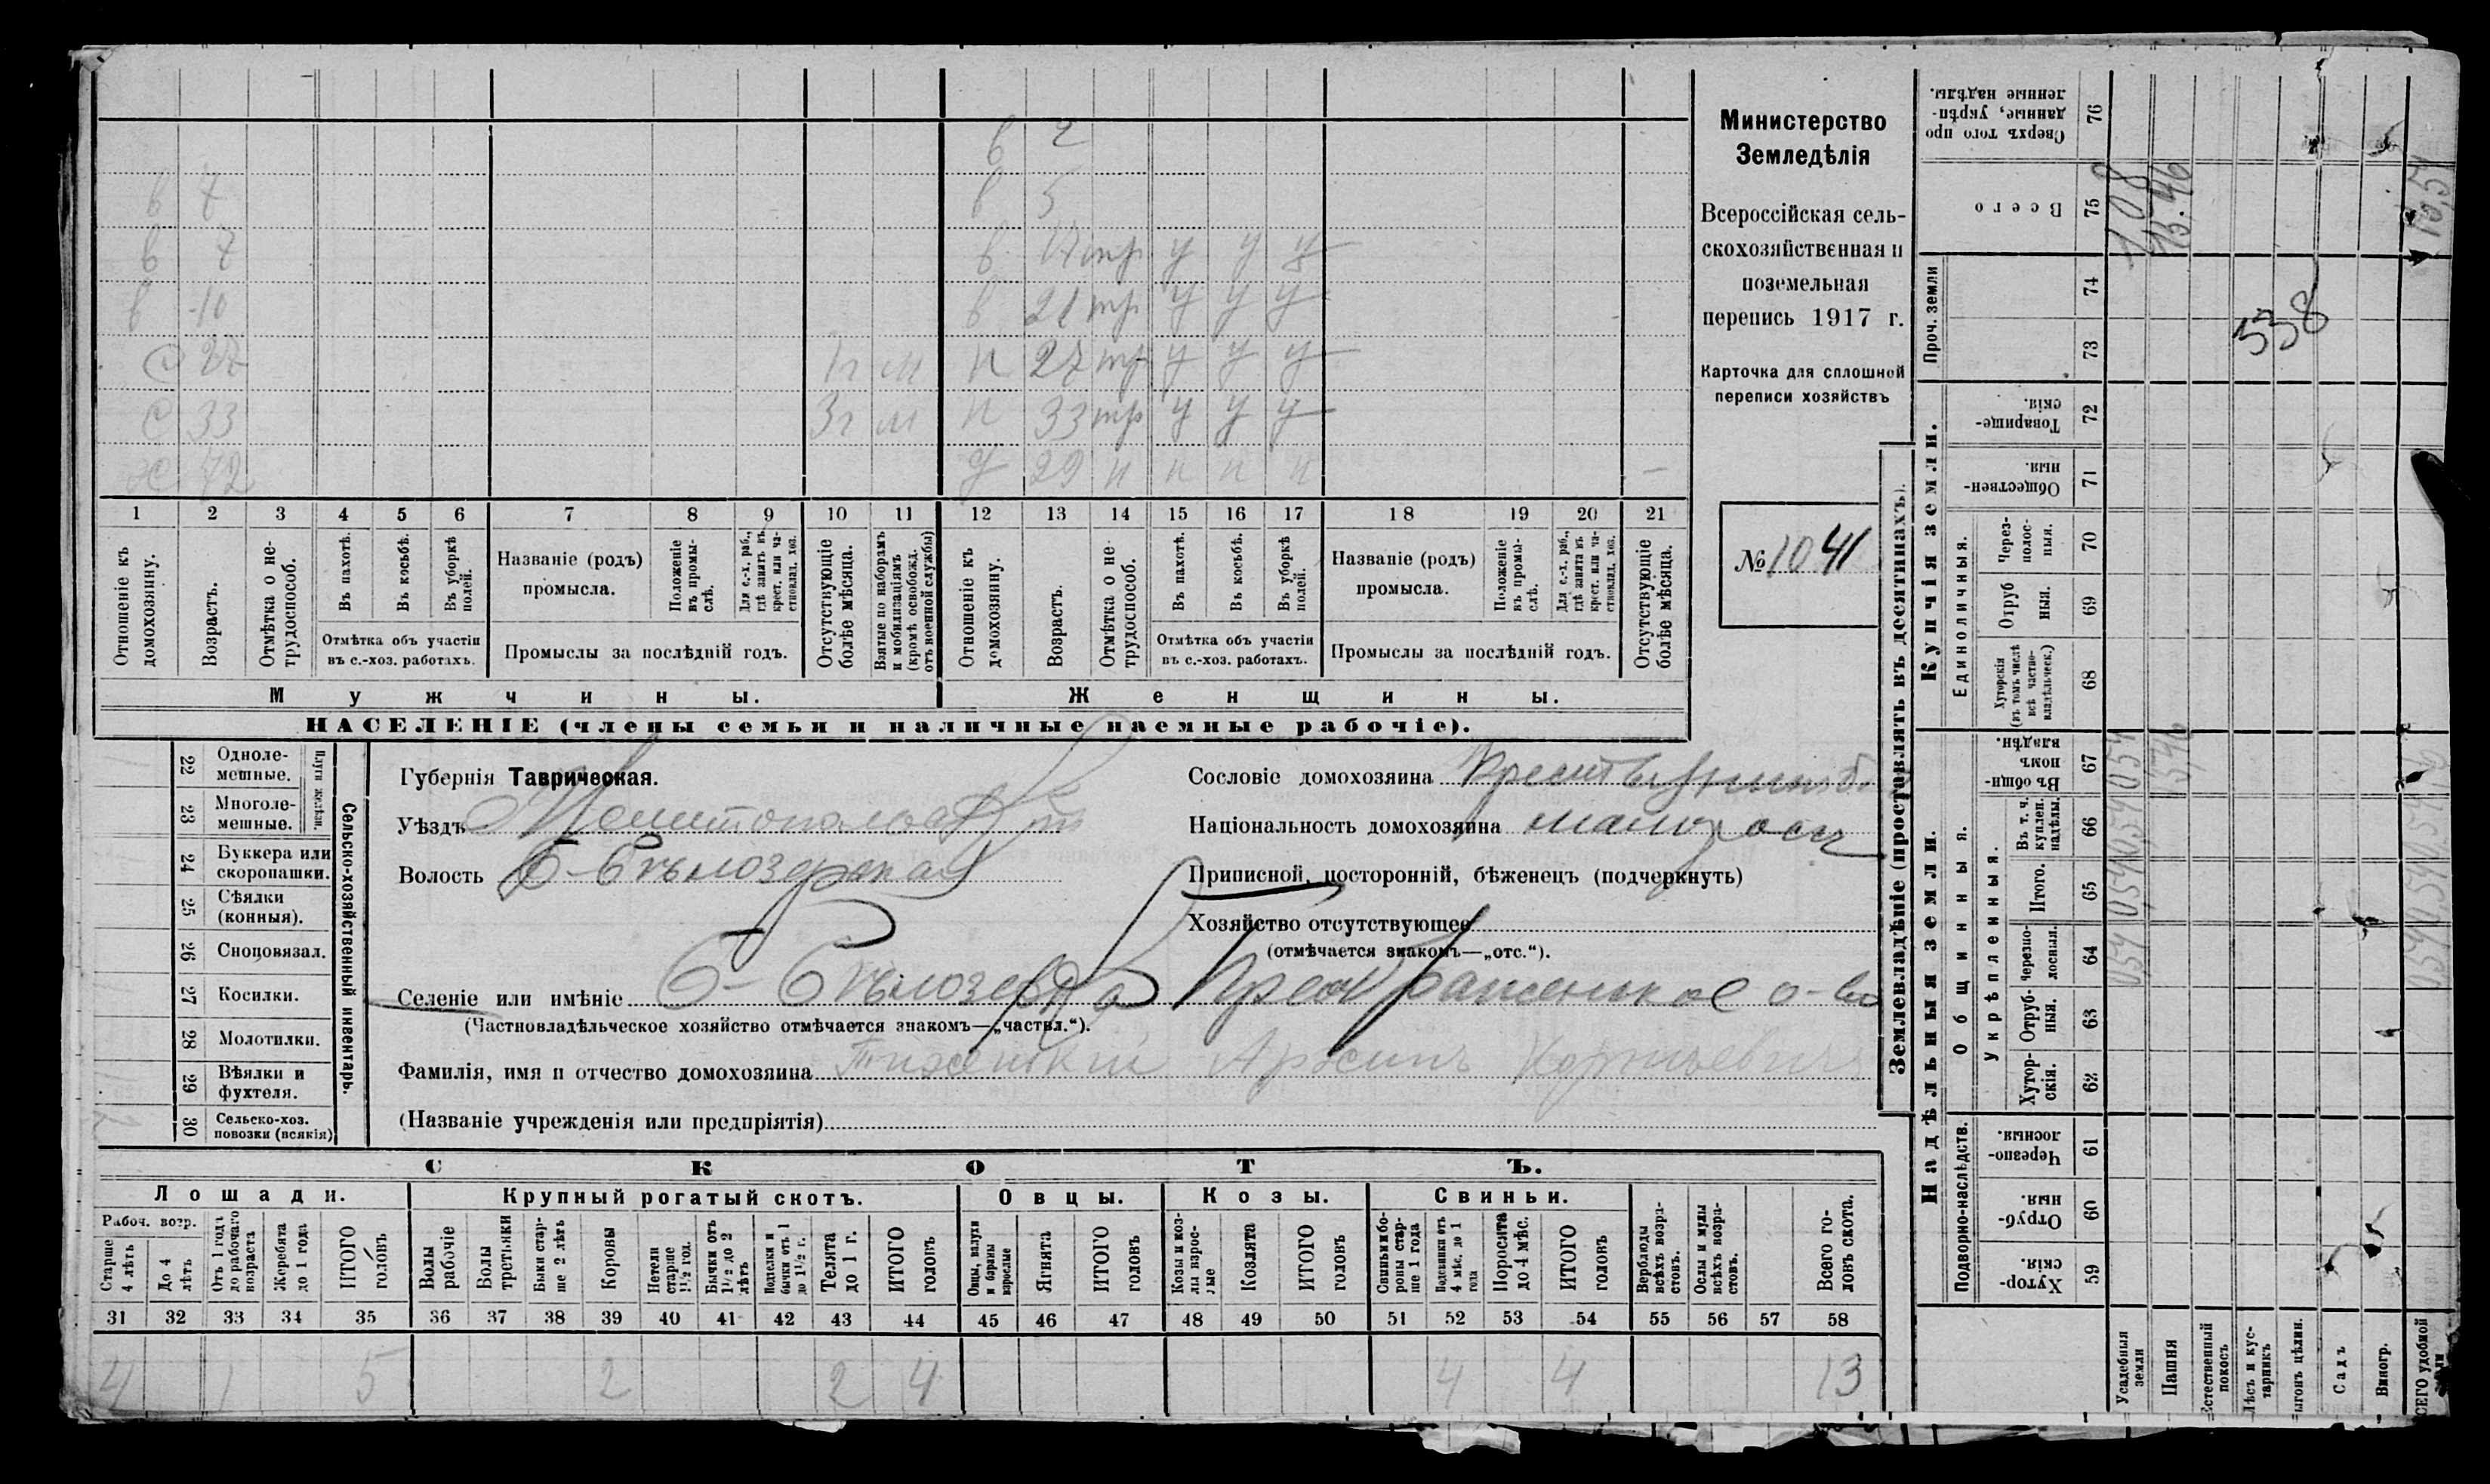 в 2
в 7 в 5
в 7 в 17 тр у у у
в 10 в 21 тр у у у
с 27 1г м н 27 тр у у у
с 33 3г м н 33 тр у у у
х 72 29 н н н н –
1 2 3 4 5 6 7 8 9 10 11 12 13 14 15 16 17 18 19 20 21
Отношеніе къ домохозяину.
Возрастъ.
Отмѣтка о не-
трудоспособ.
Въ пахотѣ.
Въ косьбѣ.
Въ уборкѣ
полей.
Отмѣтка объ участіи
въ с.-хоз. работахъ.
Названіе (родъ)
промысла.
Положеніе
въ промы-
слѣ.
Для с.-х. раб.,
гдѣ занятъ въ
крест. или ча-
стновлад. хоз.
Промыслы за послѣдній годъ.
Отсутствующіе
болѣе мѣсяца.
Взятые по наборамъ
и мобилизаціямъ
(кромѣ освобожд.
отъ военной службы)
Отношеніе къ
домохозяину.
Возрастъ.
Отмѣтка о не
трудоспособ.
Въ пахотѣ.
Въ косьбѣ.
Въ уборкѣ
полей.
Отмѣтка объ участіи
въ с.-хоз. работахъ.
Названіе (родъ)
промысла.
Положеніе
въ промы-
слѣ.
Для с.-х. раб.,
гдѣ занята въ
крест. или ча-
стновлад. хоз.
Промыслы за послѣдній годъ.
Отсутствующіе
болѣе мѣсяца.
Мужчины.
Женщины.
НАСЕЛЕНІЕ (члены семьи и наличные наемные рабочіе).
Министерство
Земледѣлія
Всероссійская сель-
скохозяйственная и
поземельная
перепись 1917 г.
Карточка для сплошной
переписи хозяйствъ
№ 1041
22 Одноле-
мешные.
23 Многоле-
мешные.
Плуги желѣзн.
24 Буккера или
скоропашки.
25 Сѣялки
(конныя).
26 Сноповязал.
27 Косилки.
28 Молотилки.
29 Вѣялки и
фухтеля.
30 Сельско-хоз.
повозки (всякія)
Сельско-хозяйственный инвентарь.
Губернія Таврическая.
Уѣздъ Мелитопольскій
Волость Б-Бѣлозерская
Селеніе или имѣніе Б-Бѣлозерка Преображенское о-во
(Частновладѣльческое хозяйство отмѣчается знакомъ—„частвл.“).
Фамилія, имя и отчество домохозяина
(Названіе учрежденія или предпріятія)
Сословіе домохозяина
Національность домохозяина малоросс
Приписной, посторонній, бѣженецъ (подчеркнуть)
Хозяйство отсутствующее
(отмѣчается знакомъ—„отс.“).
СКОТЪ.
Лошади. Крупный рогатый скотъ. Овцы. Козы. Свиньи.
Рабоч. возр.
Старше
4 лѣтъ
До 4
лѣтъ
Отъ 1 года
до рабочаго
возраста
Жеребята
до 1 года
ИТОГО
головъ
Волы
рабочіе
Волы
третьяки
Быки стар-
ше 2 лѣтъ
Коровы
Нетели
старше
1½ год.
Бычки отъ
1½ до 2
лѣтъ
Подтелки и
бычки отъ 1
до 1½ г.
Телята
до 1 г.
ИТОГО
головъ
Овцы, валухи
и бараны
взрослые
Ягнята
ИТОГО
головъ
Козы и коз-
лы взрос-
лые
Козлята
ИТОГО
головъ
Свиньи и бо-
ровы стар-
ше 1 года
Подсвинки отъ
4 мѣс. до 1
года
Поросята
до 4 мѣс.
ИТОГО
головъ
Верблюды
всѣхъ возра-
стовъ.
Ослы и мулы
всѣхъ возра-
стовъ.
Всего го-
ловъ скота.
31 32 33 34 35 36 37 38 39 40 41 42 43 44 45 46 47 48 49 50 51 52 53 54 55 56 57 58
4 1 5 2 2 4 4 4 13
Землевладѣніе (проставлять въ десятинахъ).
Надѣльныя земли.
Купчія земли.
Проч. земли
Подворно-наслѣдств.
Общинныя.
Укрѣпленныя.
Единоличныя.
Сверхъ того про
данные, укрѣп-
ленные надѣлы.
76
Всего
75
74
73
Товарище-
скія.
72
Обществен-
ныя.
71
Через-
полос-
ныя.
70
Отруб
ныя.
69
Хуторскія
(въ томъ числѣ
всѣ частно-
владѣльческ.)
68
Въ общин-
номъ
владѣн.
67
Въ т. ч.
куплен.
надѣлы.
66
Итого.
65
Черезпо-
лосныя.
64
Отруб-
ныя.
63
Хутор-
скія.
62
Черезпо-
лосныя.
61
Отруб-
ныя.
60
Хутор-
скія.
59
Усадебныя
земли
Пашня
Естественный
покосъ
Лѣсъ и кус-
тарникъ
Выгонъ цѣлин.
Садъ
Виногр.
ВСЕГО удобной
1 08
15.46
538
054 054 054 054
1546